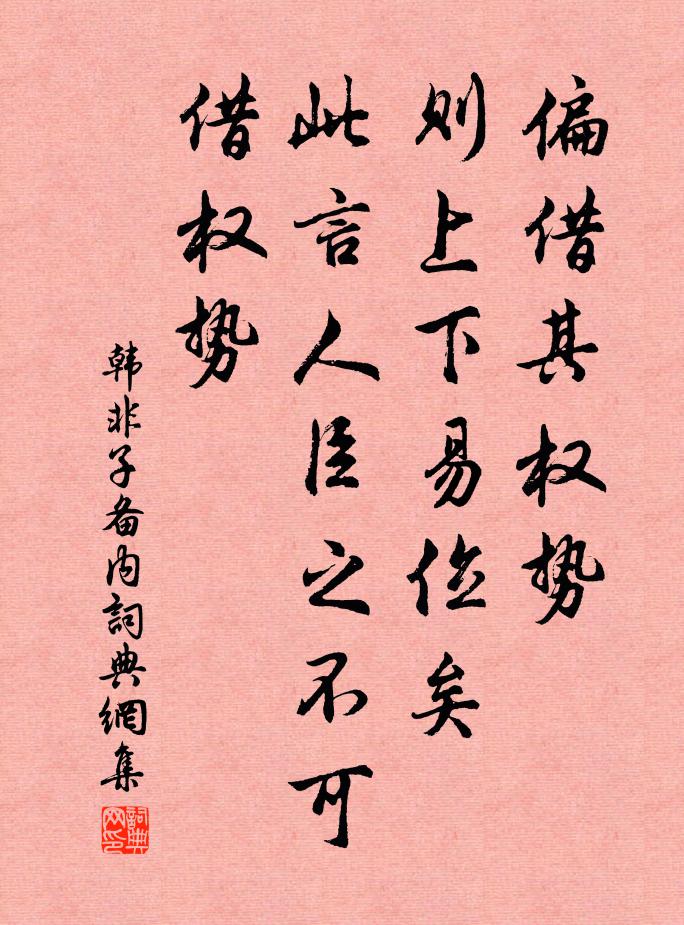 偏借其权势
则上下易位矣
此言人臣之不可
借权势
韩非子备内詞典網集
詞典网印